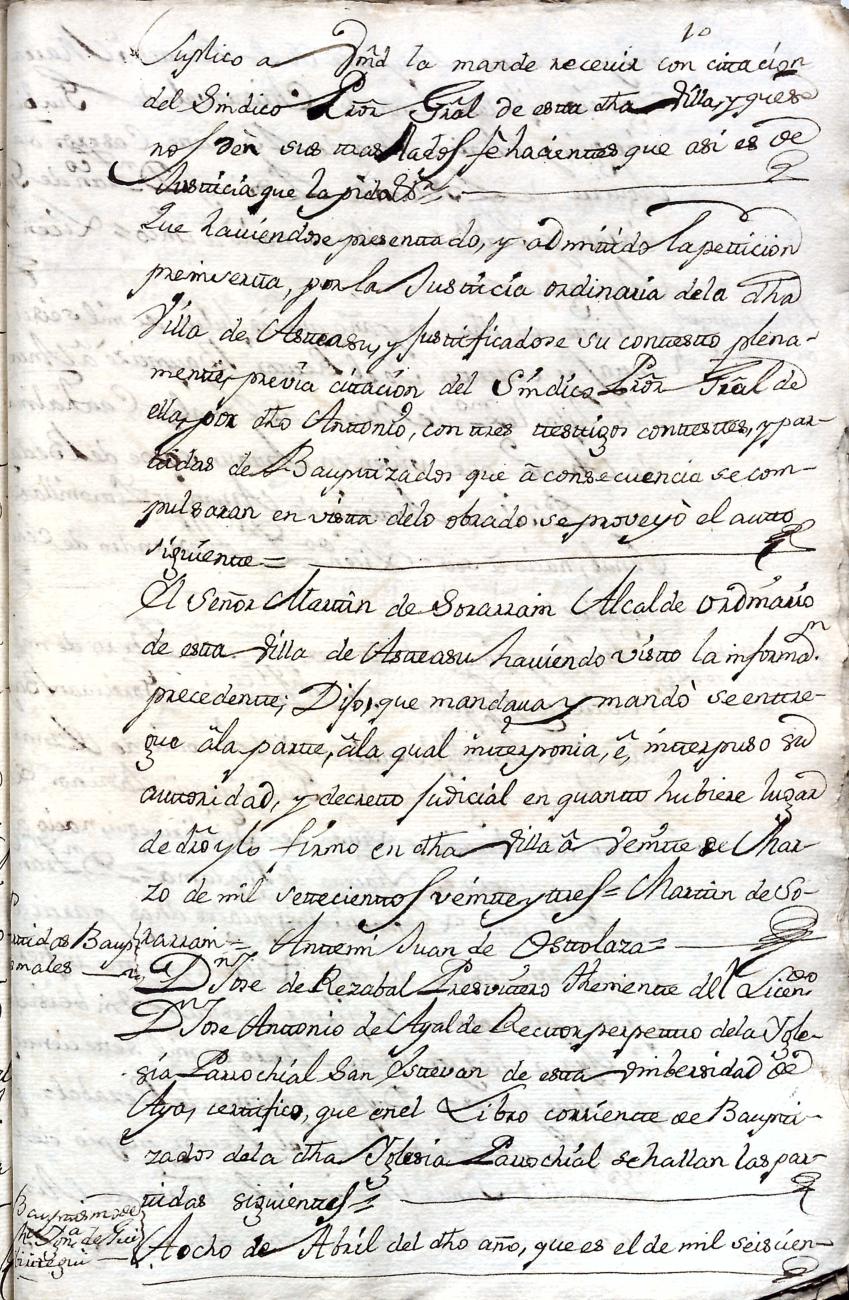 10
Suplico a Vmd la mande receuir con citación
del Síndico Prōr Grāl de esta dha Villa, y que se
nos dèn sus traslados feehacientes que asi es de
Justicia que la pido &ra
Que hauiéndose presenttado, y admitido la petición
preinserta, por la Justicia ordinaria dela dha
Villa de Asteasu, y justificadose su contestto plena-
mente, previa citación del Síndico Prōr Grāl de
ella, por dho Anttonio, con tres testigos contestes, y par-
tidas de Bauptizados que à consecuencia se com-
pulsaran en vistta delo obrado se proveyò el autto
siguiente=
El señor Martin de Sorarrain Alcalde ordinario
de esta Villa de Asteasu hauiendo vistto la informan.
precedente; Dijo, que mandaua y mandò se enttre-
gue àla parte, àla qual intterponia, è, intterpuso su
auttoridad, y decretto judicial en quantto hubiere lugar
de dro y lo firmo en dha Villa à Veintte de Mar-
zo de mil settecienttos veintte y tres= Martin de So-
rarrain= Antemi Juan de Osttolaza=
Partidas Baup-
tismales
Dn Jose de Rezabal Presvittero Theniente del Licendo
Dn Jose Anttonio de Ayalde Recttor perpettuo dela Ygle-
sia Parrochial San Esttevan de esta Vniversidad de
Aya, certtifico, que enel Libro corriente de Baupti-
zados dela dha Yglesia Parrochial se hallan las par-
tidas siguienttes=
Bauptismo de
Aocho de Abril del dho año, que es el de mil seiscien-